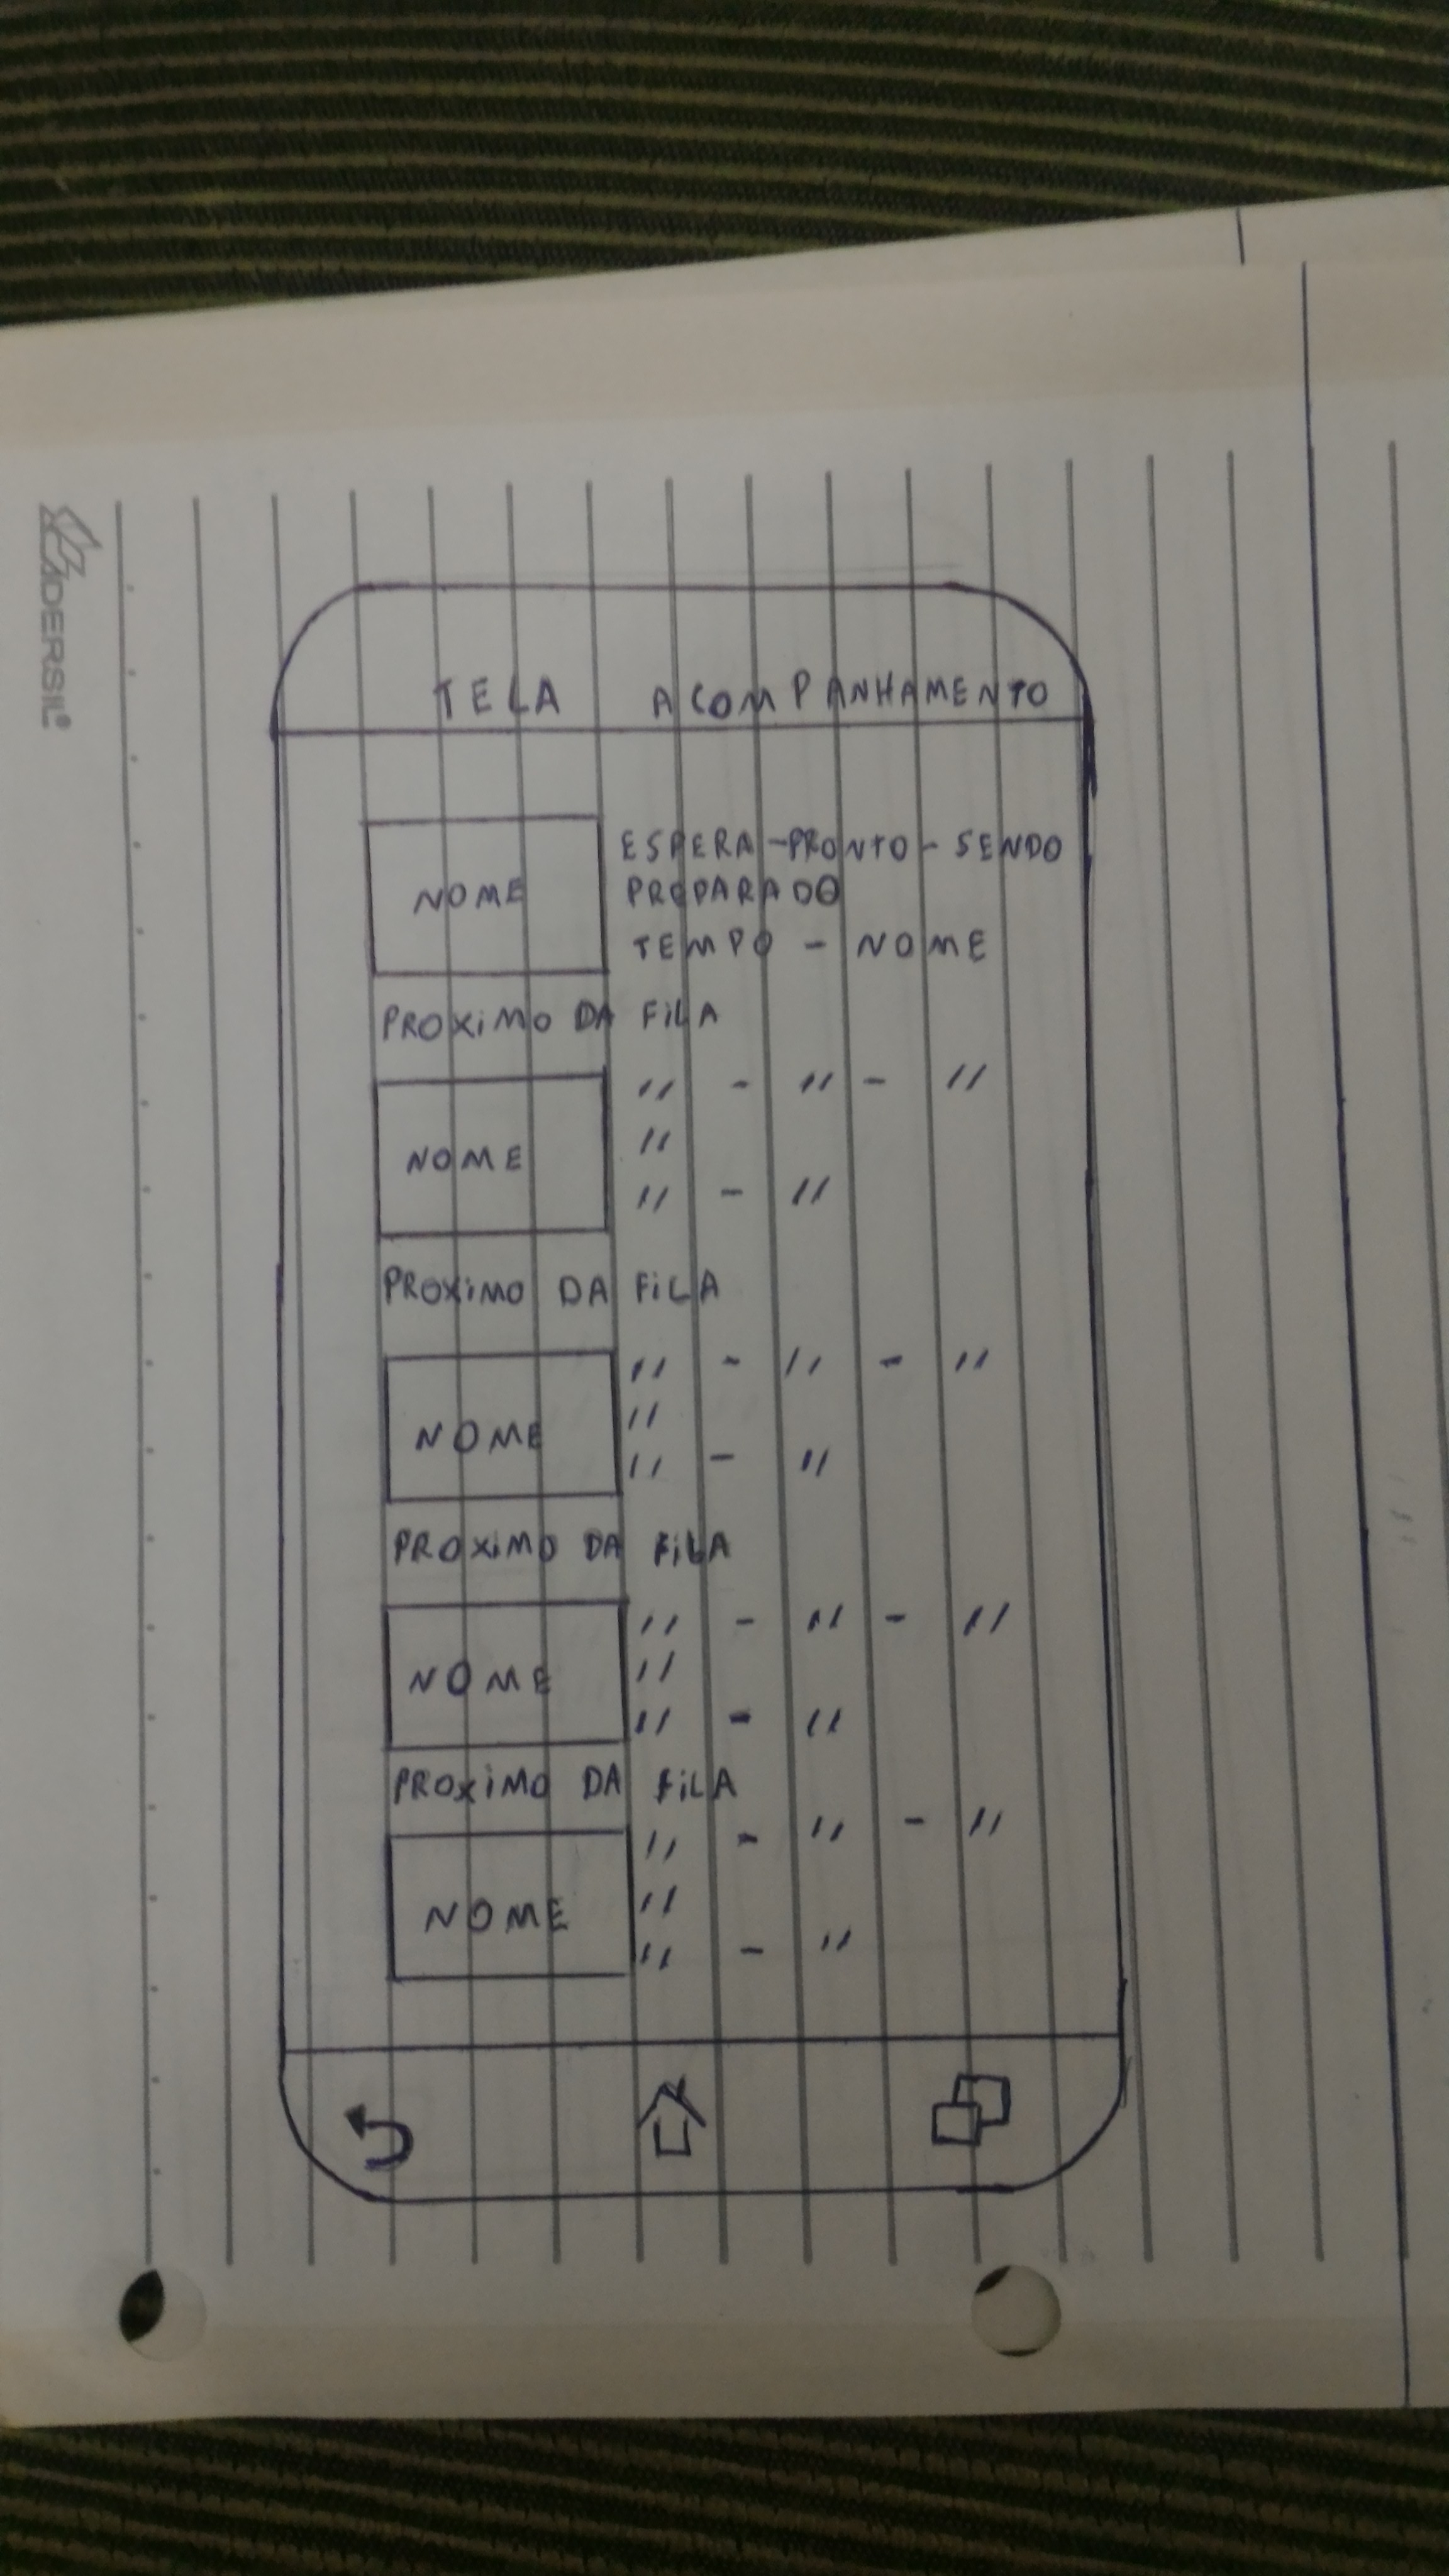 ADERSIL®
TELA ACOMPANHAMENTO
NOME
ESPERA - PRONTO - SENDO
PREPARADO
TEMPO - NOME
PROXIMO DA FILA
NOME
" - " - "
"
" - "
PROXIMO DA FILA
NOME
" - " - "
"
" - "
PROXIMO DA FILA
NOME
" - " - "
"
" - "
PROXIMO DA FILA
NOME
" - " - "
"
" - "